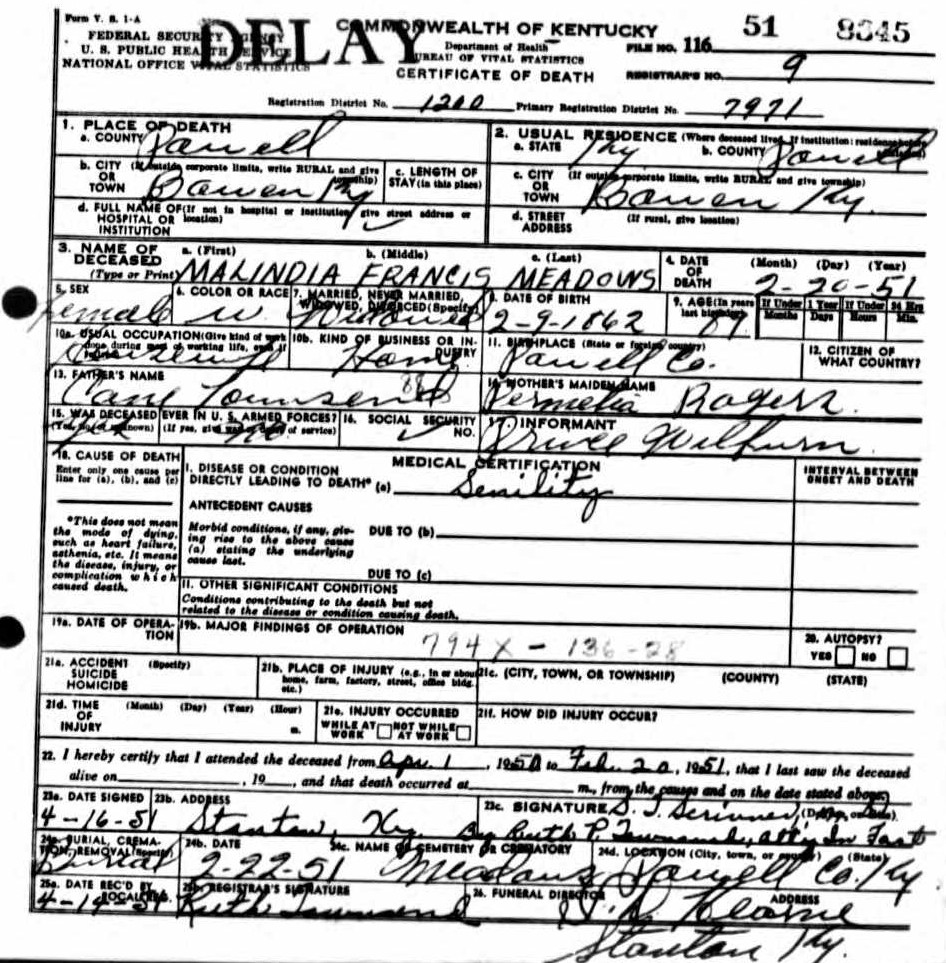 Form V. S. 1-A
FEDERAL SECURITY AGENCY
U. S. PUBLIC HEALTH SERVICE
NATIONAL OFFICE VITAL STATISTICS
DELAY
COMMONWEALTH OF KENTUCKY
Department of Health
BUREAU OF VITAL STATISTICS
CERTIFICATE OF DEATH
FILE NO. 116 51 8345
REGISTRAR'S NO. 9
Registration District No. 1200 Primary Registration District No. 7971
1. PLACE OF DEATH
a. COUNTY Powell
2. USUAL RESIDENCE (Where deceased lived. If institution: residence before
a. STATE Ky b. COUNTY Powell
b. CITY (If outside corporate limits, write RURAL and give township)
OR
TOWN Bowen Ky
c. LENGTH OF STAY (in this place)
c. CITY (If outside corporate limits, write RURAL and give township)
OR
TOWN Bowen Ky.
d. FULL NAME OF (If not in hospital or institution, give street address or location)
HOSPITAL OR
INSTITUTION
d. STREET ADDRESS (If rural, give location)
3. NAME OF DECEASED (Type or Print)
a. (First) b. (Middle) c. (Last)
MALINDIA FRANCIS MEADOWS
4. DATE OF DEATH (Month) (Day) (Year)
2-20-51
5. SEX Female
6. COLOR OR RACE W
7. MARRIED, NEVER MARRIED, WIDOWED, DIVORCED (Specify) Widowed
8. DATE OF BIRTH 2-9-1862
9. AGE (In years last birthday) 89
If Under 1 Year Months Days
If Under 24 Hrs Hours Min.
10a. USUAL OCCUPATION (Give kind of work done during most of working life, even if retired) Housewife
10b. KIND OF BUSINESS OR INDUSTRY Home
11. BIRTHPLACE (State or foreign country) Powell Co.
12. CITIZEN OF WHAT COUNTRY?
13. FATHER'S NAME
Cany Townsend 88
14. MOTHER'S MAIDEN NAME
Permelia Rogers
15. WAS DECEASED EVER IN U. S. ARMED FORCES?
(Yes, no, or unknown) (If yes, give war or dates of service) no
16. SOCIAL SECURITY NO.
17. INFORMANT
Bruce Wilburn
18. CAUSE OF DEATH
Enter only one cause per line for (a), (b), and (c)
MEDICAL CERTIFICATION
INTERVAL BETWEEN ONSET AND DEATH
I. DISEASE OR CONDITION
DIRECTLY LEADING TO DEATH* (a) Senility
*This does not mean the mode of dying, such as heart failure, asthenia, etc. It means the disease, injury, or complication which caused death.
ANTECEDENT CAUSES
Morbid conditions, if any, giving rise to the above cause (a) stating the underlying cause last.
DUE TO (b)
DUE TO (c)
II. OTHER SIGNIFICANT CONDITIONS
Conditions contributing to the death but not related to the disease or condition causing death.
19a. DATE OF OPERATION
19b. MAJOR FINDINGS OF OPERATION
794X - 136-28
20. AUTOPSY?
YES NO
21a. ACCIDENT (Specify)
SUICIDE
HOMICIDE
21b. PLACE OF INJURY (e.g., in or about home, farm, factory, street, office bldg. etc.)
21c. (CITY, TOWN, OR TOWNSHIP) (COUNTY) (STATE)
21d. TIME OF INJURY (Month) (Day) (Year) (Hour) m.
21e. INJURY OCCURRED
WHILE AT WORK NOT WHILE AT WORK
21f. HOW DID INJURY OCCUR?
22. I hereby certify that I attended the deceased from Apr. 1, 1950 to Feb. 20, 1951, that I last saw the deceased
alive on , 19 , and that death occurred at m., from the causes and on the date stated above.
23a. DATE SIGNED
4-16-51
23b. ADDRESS
Stanton, Ky.
23c. SIGNATURE
By Ruth P. Townsend, att'y In Fact
24a. BURIAL, CREMATION, REMOVAL (Specify)
Burial
24b. DATE
2-22-51
24c. NAME OF CEMETERY OR CREMATORY
Meadows
24d. LOCATION (City, town, or county) (State)
Powell Co. Ky
25a. DATE REC'D BY LOCAL REG.
4-14-51
25b. REGISTRAR'S SIGNATURE
Ruth Townsend
26. FUNERAL DIRECTOR ADDRESS
Stanton Ky.